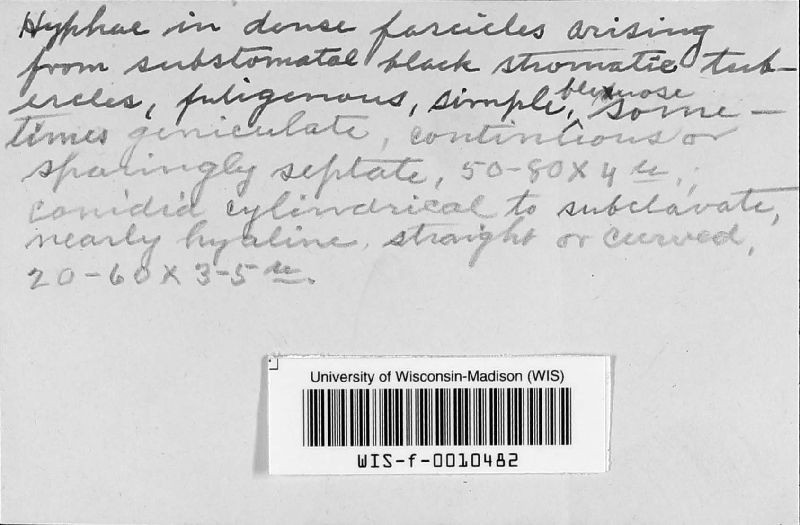 Hyphae in dense fascicles arising
from substomatal black stromatic tub-
ercles, fuligenous, simple, flexuose some-
times geniculate, continuous or
sparingly septate, 50-80 x 4 u.;
conidia cylindrical to subclavate,
nearly hyaline, straight or curved,
20-60 x 3-5 u.
University of Wisconsin-Madison (WIS)
WIS-f-0010482